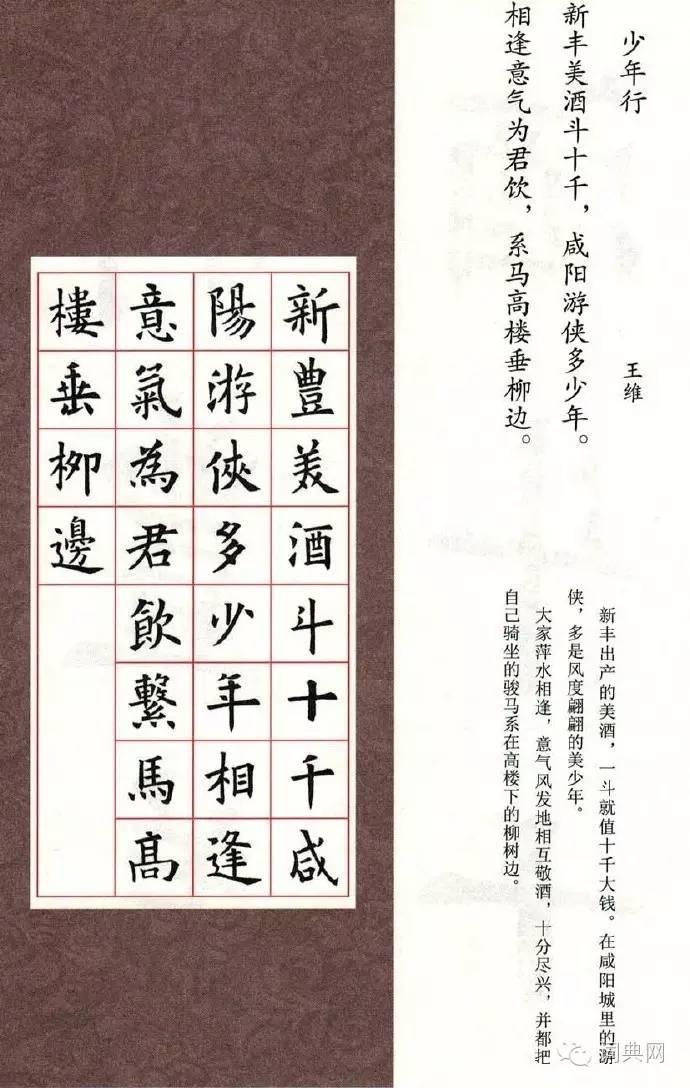 少年行
王维
新丰美酒斗十千，咸阳游侠多少年。
相逢意气为君饮，系马高楼垂柳边。
新丰出产的美酒，一斗就值十千大钱。在咸阳城里的游
侠，多是风度翩翩的美少年。
大家萍水相逢，意气风发地相互敬酒，十分尽兴，并都把
自己骑坐的骏马系在高楼下的柳树边。
新豊美酒斗十千咸
陽游俠多少年相逢
意氣為君飲繫馬高
樓垂柳邊
词典网